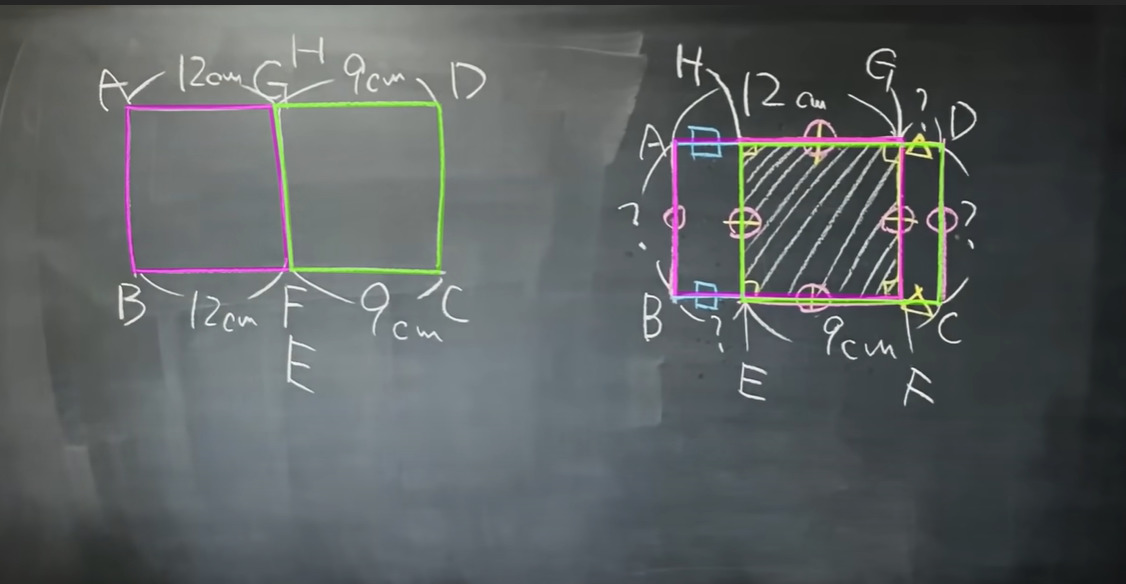 A 12cm G H 9cm D
B 12cm F 9cm C
E
H G
A 12cm ? D
? ?
B ? 9cm C
E F